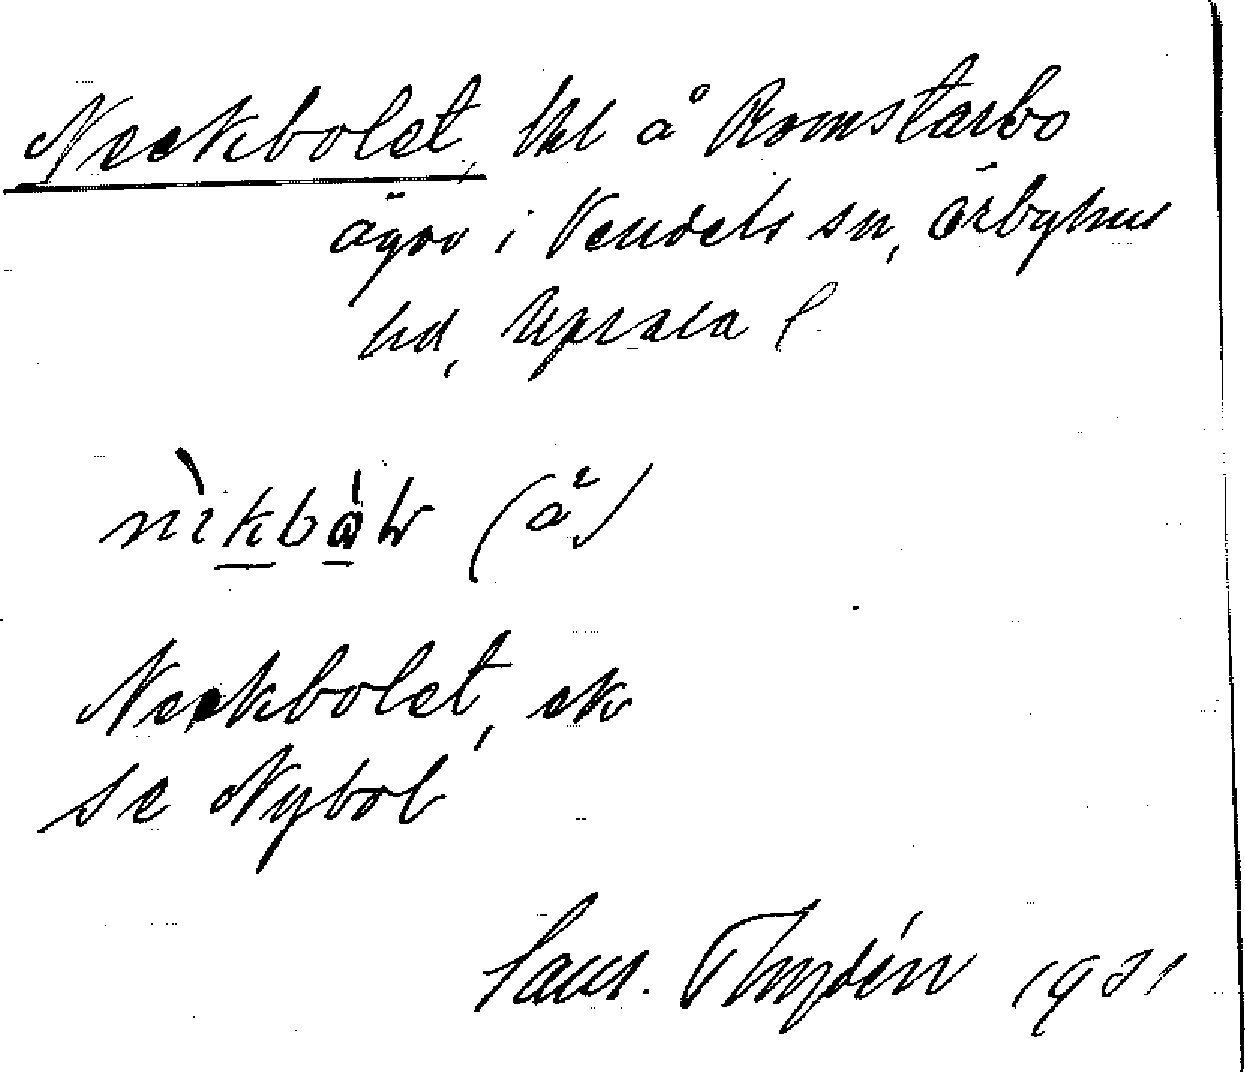 Neckbolet, lht å Romstarbo
ägor i Vendels sn, Örbyhus
hd, Upsala l
Neckbolet, ek
se Nybol
Saml. Thydén 1931